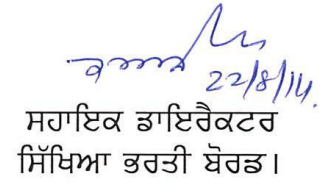 22/8/14.
ਸਹਾਇਕ ਡਾਇਰੈਕਟਰ
ਸਿੱਖਿਆ ਭਰਤੀ ਬੋਰਡ।